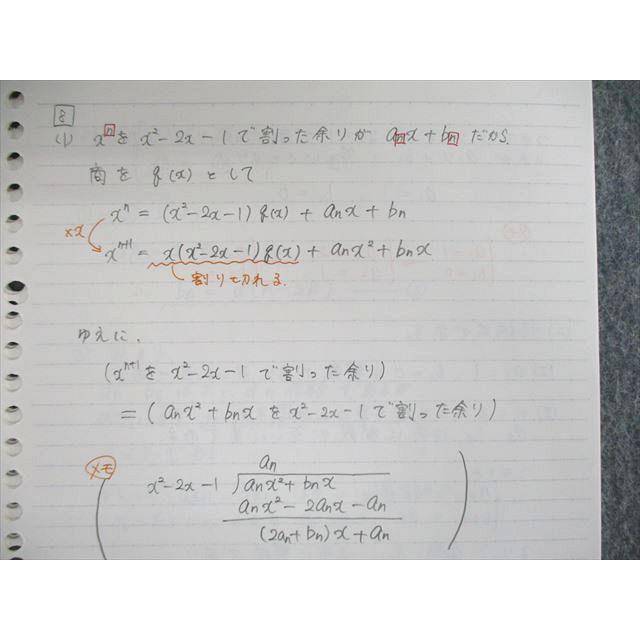 8
(1) x^n を x²-2x-1 で割った余りが a_n x + b_n だから、
商を f(x) として
x^n = (x²-2x-1) f(x) + a_n x + b_n
×x
x^{n+1} = x(x²-2x-1) f(x) + a_n x² + b_n x
割り切れる.
ゆえに、
(x^{n+1} を x²-2x-1 で割った余り)
= (a_n x² + b_n x を x²-2x-1 で割った余り)
メモ
a_n
x²-2x-1 ) a_n x² + b_n x
a_n x² - 2a_n x - a_n
(2a_n + b_n) x + a_n